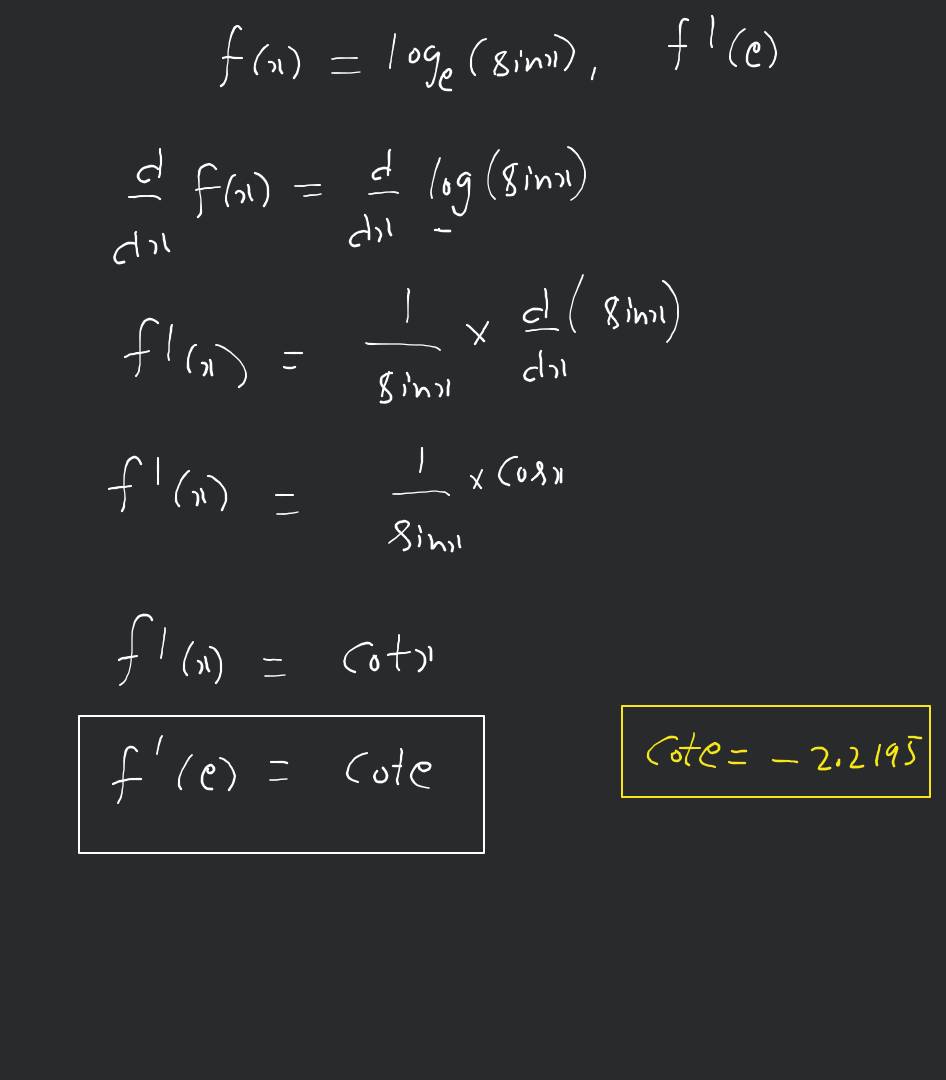 f(x) = logₑ(sinx), f'(e)
d/dx f(x) = d/dx log(sinx)
f'(x) = 1/sinx × d/dx (sinx)
f'(x) = 1/sinx × cosx
f'(x) = cotx
f'(e) = cote
cote = -2.2195